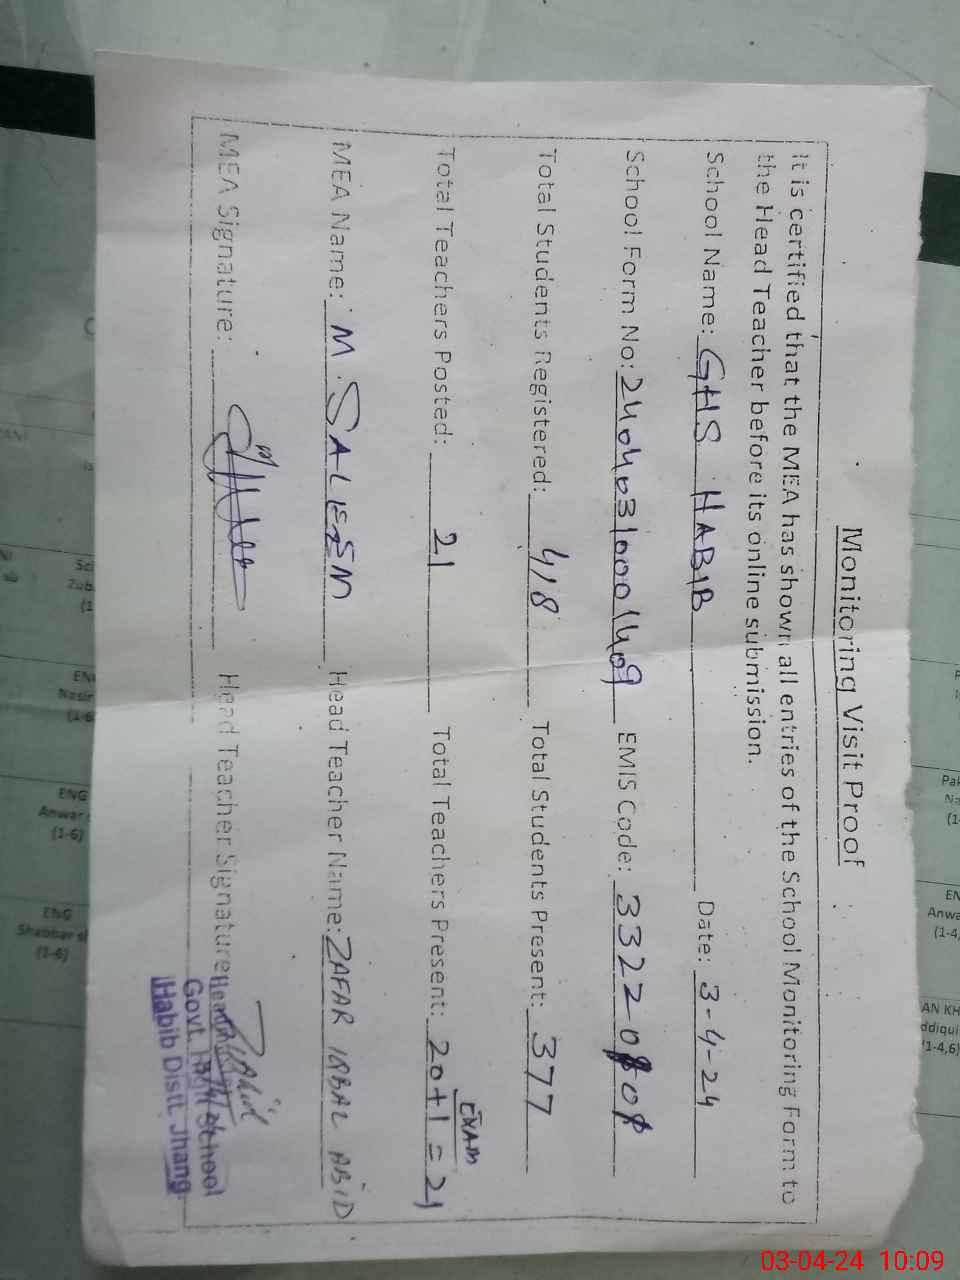 Monitoring Visit Proof
It is certified that the MEA has shown all entries of the School Monitoring Form to
the Head Teacher before its online submission.
School Name: GHS HABIB Date: 3-4-24
School Form No: 24040310001409 EMIS Code: 33220
Total Students Registered: 418 Total Students Present: 377
Total Teachers Posted: 21 Total Teachers Present: 20+1=21
EXAM
MEA Name: M. SALEEM Head Teacher Name: ZAFAR IQBAL ABID
MEA Signature: Head Teacher Signature:
Govt. High School
Habib Distt. Jhang
ENG
Anwar
(1-6)
ENG
Shabbar
(1-6)
03-04-24 10:09